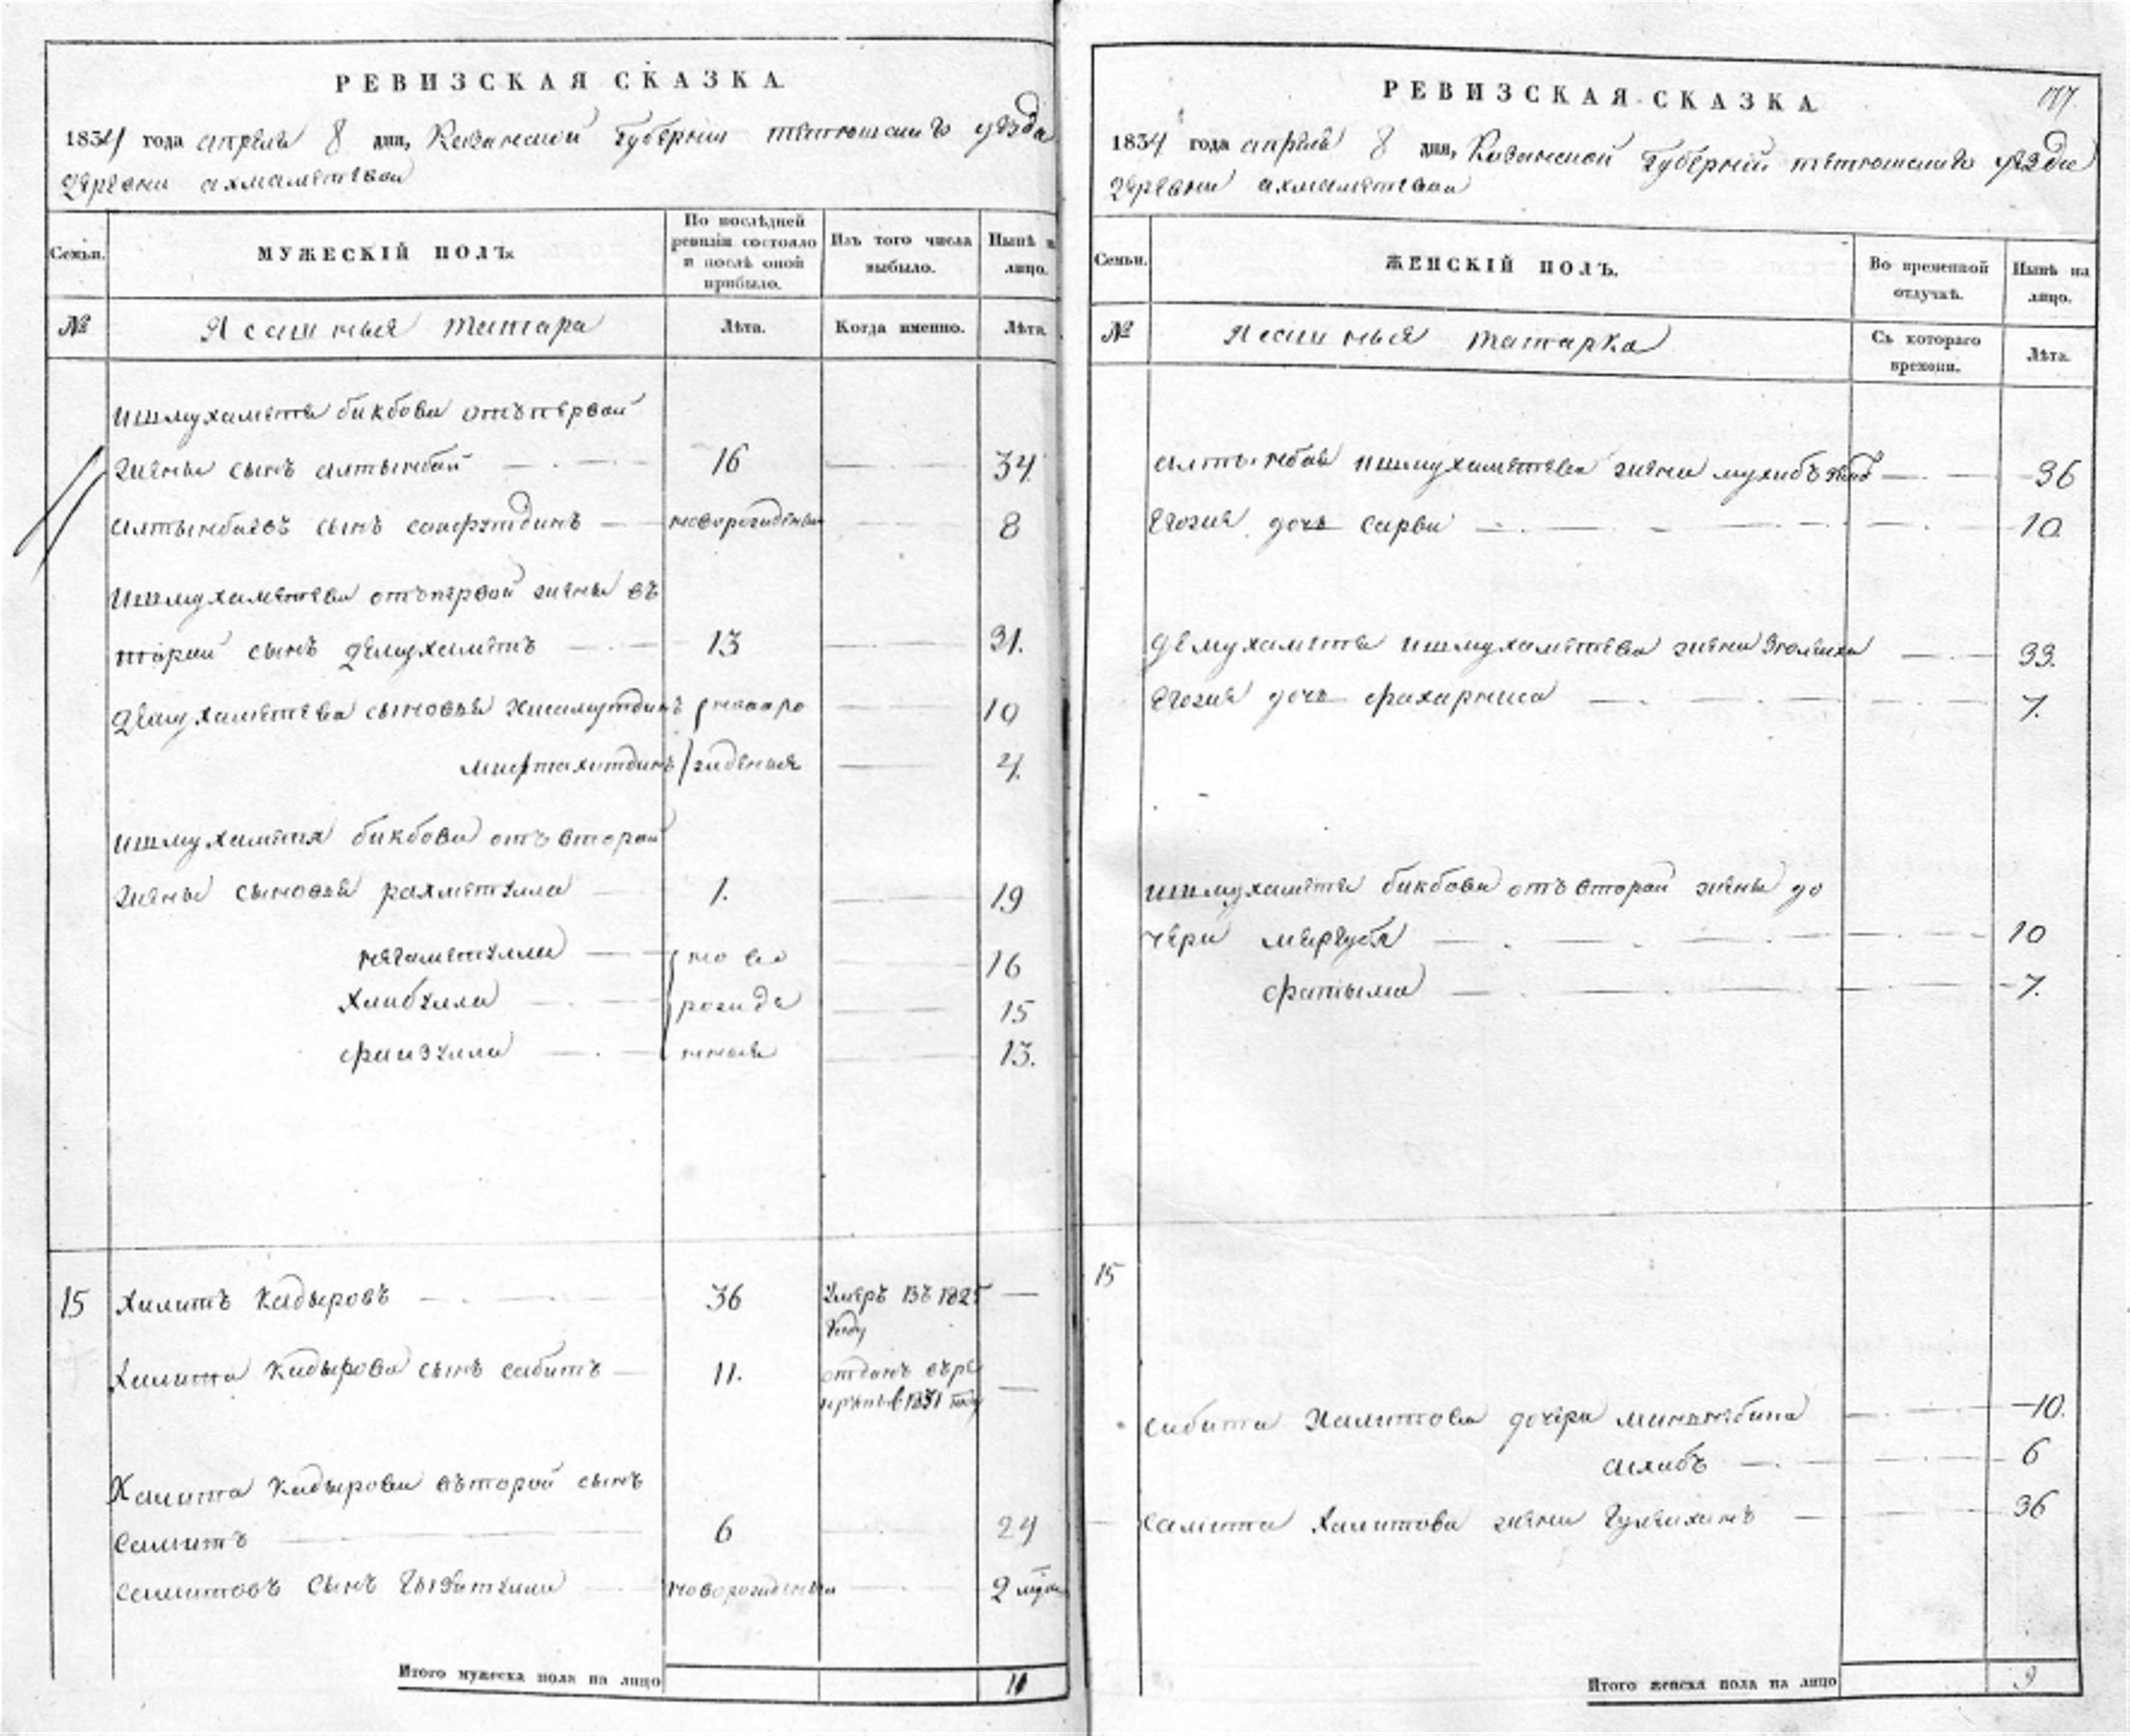 РЕВИЗСКАЯ СКАЗКА.
1834 года апреля 8 дня, Казанской Губернии тетюшскаго уѣзда
деревни ахмаметевой
Семьи.
МУЖЕСКІЙ ПОЛЪ.
По послѣдней ревизіи состояло и послѣ оной прибыло.
Изъ того числа выбыло.
Нынѣ на лицо.
№
Ясашныя татара
Лѣта.
Когда именно.
Лѣта.
Ишмухаметя бикбова отъ первой
жены сынъ алтынбай 16 34.
алтынбаевъ сынъ сайфутдинъ новорожденный 8
Ишмухаметева отъ первой жены въ
торой сынъ демухаметъ 13 31.
демухаметева сыновья Хисамутдинъ новаро 10
мифтахитдинъ жденыя 4.
ишмухаметя бикбова отъ второй
жены сыновья рахметулла 1. 19
негаметулла ново 16
Хаибулла рожде 15
фаизулла нныя 13.
15 Халитъ Кадыровъ 36 Умеръ въ 1825 —
году
Халита Кадырова сынъ сабитъ 11. отданъ въ ре
круты в 1831 году —
Халита Кадырова въторой сынъ
самитъ 6 24
самитовъ сынъ новорожденный 2 мѣся
Итого мужеска пола на лицо 11
РЕВИЗСКАЯ СКАЗКА.
1834 года апреля 8 дня, Казанской Губерніи тетюшскаго уѣзда
деревни ахмаметевой
Семьи.
ЖЕНСКІЙ ПОЛЪ.
Во временной отлучкѣ.
Нынѣ на лицо.
№
Ясашныя татарка
Съ котораго времени.
Лѣта.
алтынбая ишмухаметева жена 36
Егозия дочь сарви 10.
демухаметя ишмухаметева жена 33.
Егозия дочь фахарниса 7.
ишмухаметя бикбова отъ второй жены до
чери мергубя 10
фатыма 7.
15
сабита Халитова дочери 10.
6
самита Халитова жена 36
Итого женска пола на лицо 9